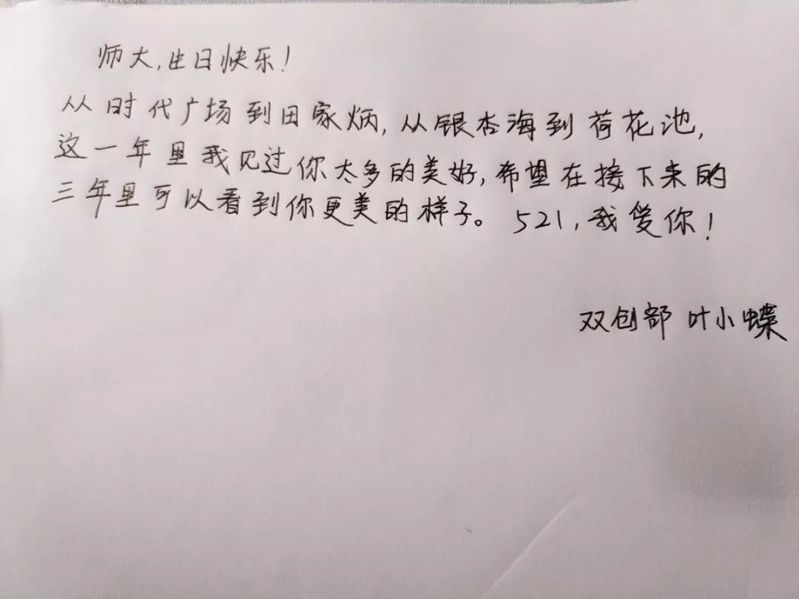 师大,生日快乐!
从时代广场到田家炳,从银杏海到荷花池,
这一年里我见过你太多的美好,希望在接下来的
三年里可以看到你更美的样子。521,我爱你!
双创部 叶小蝶